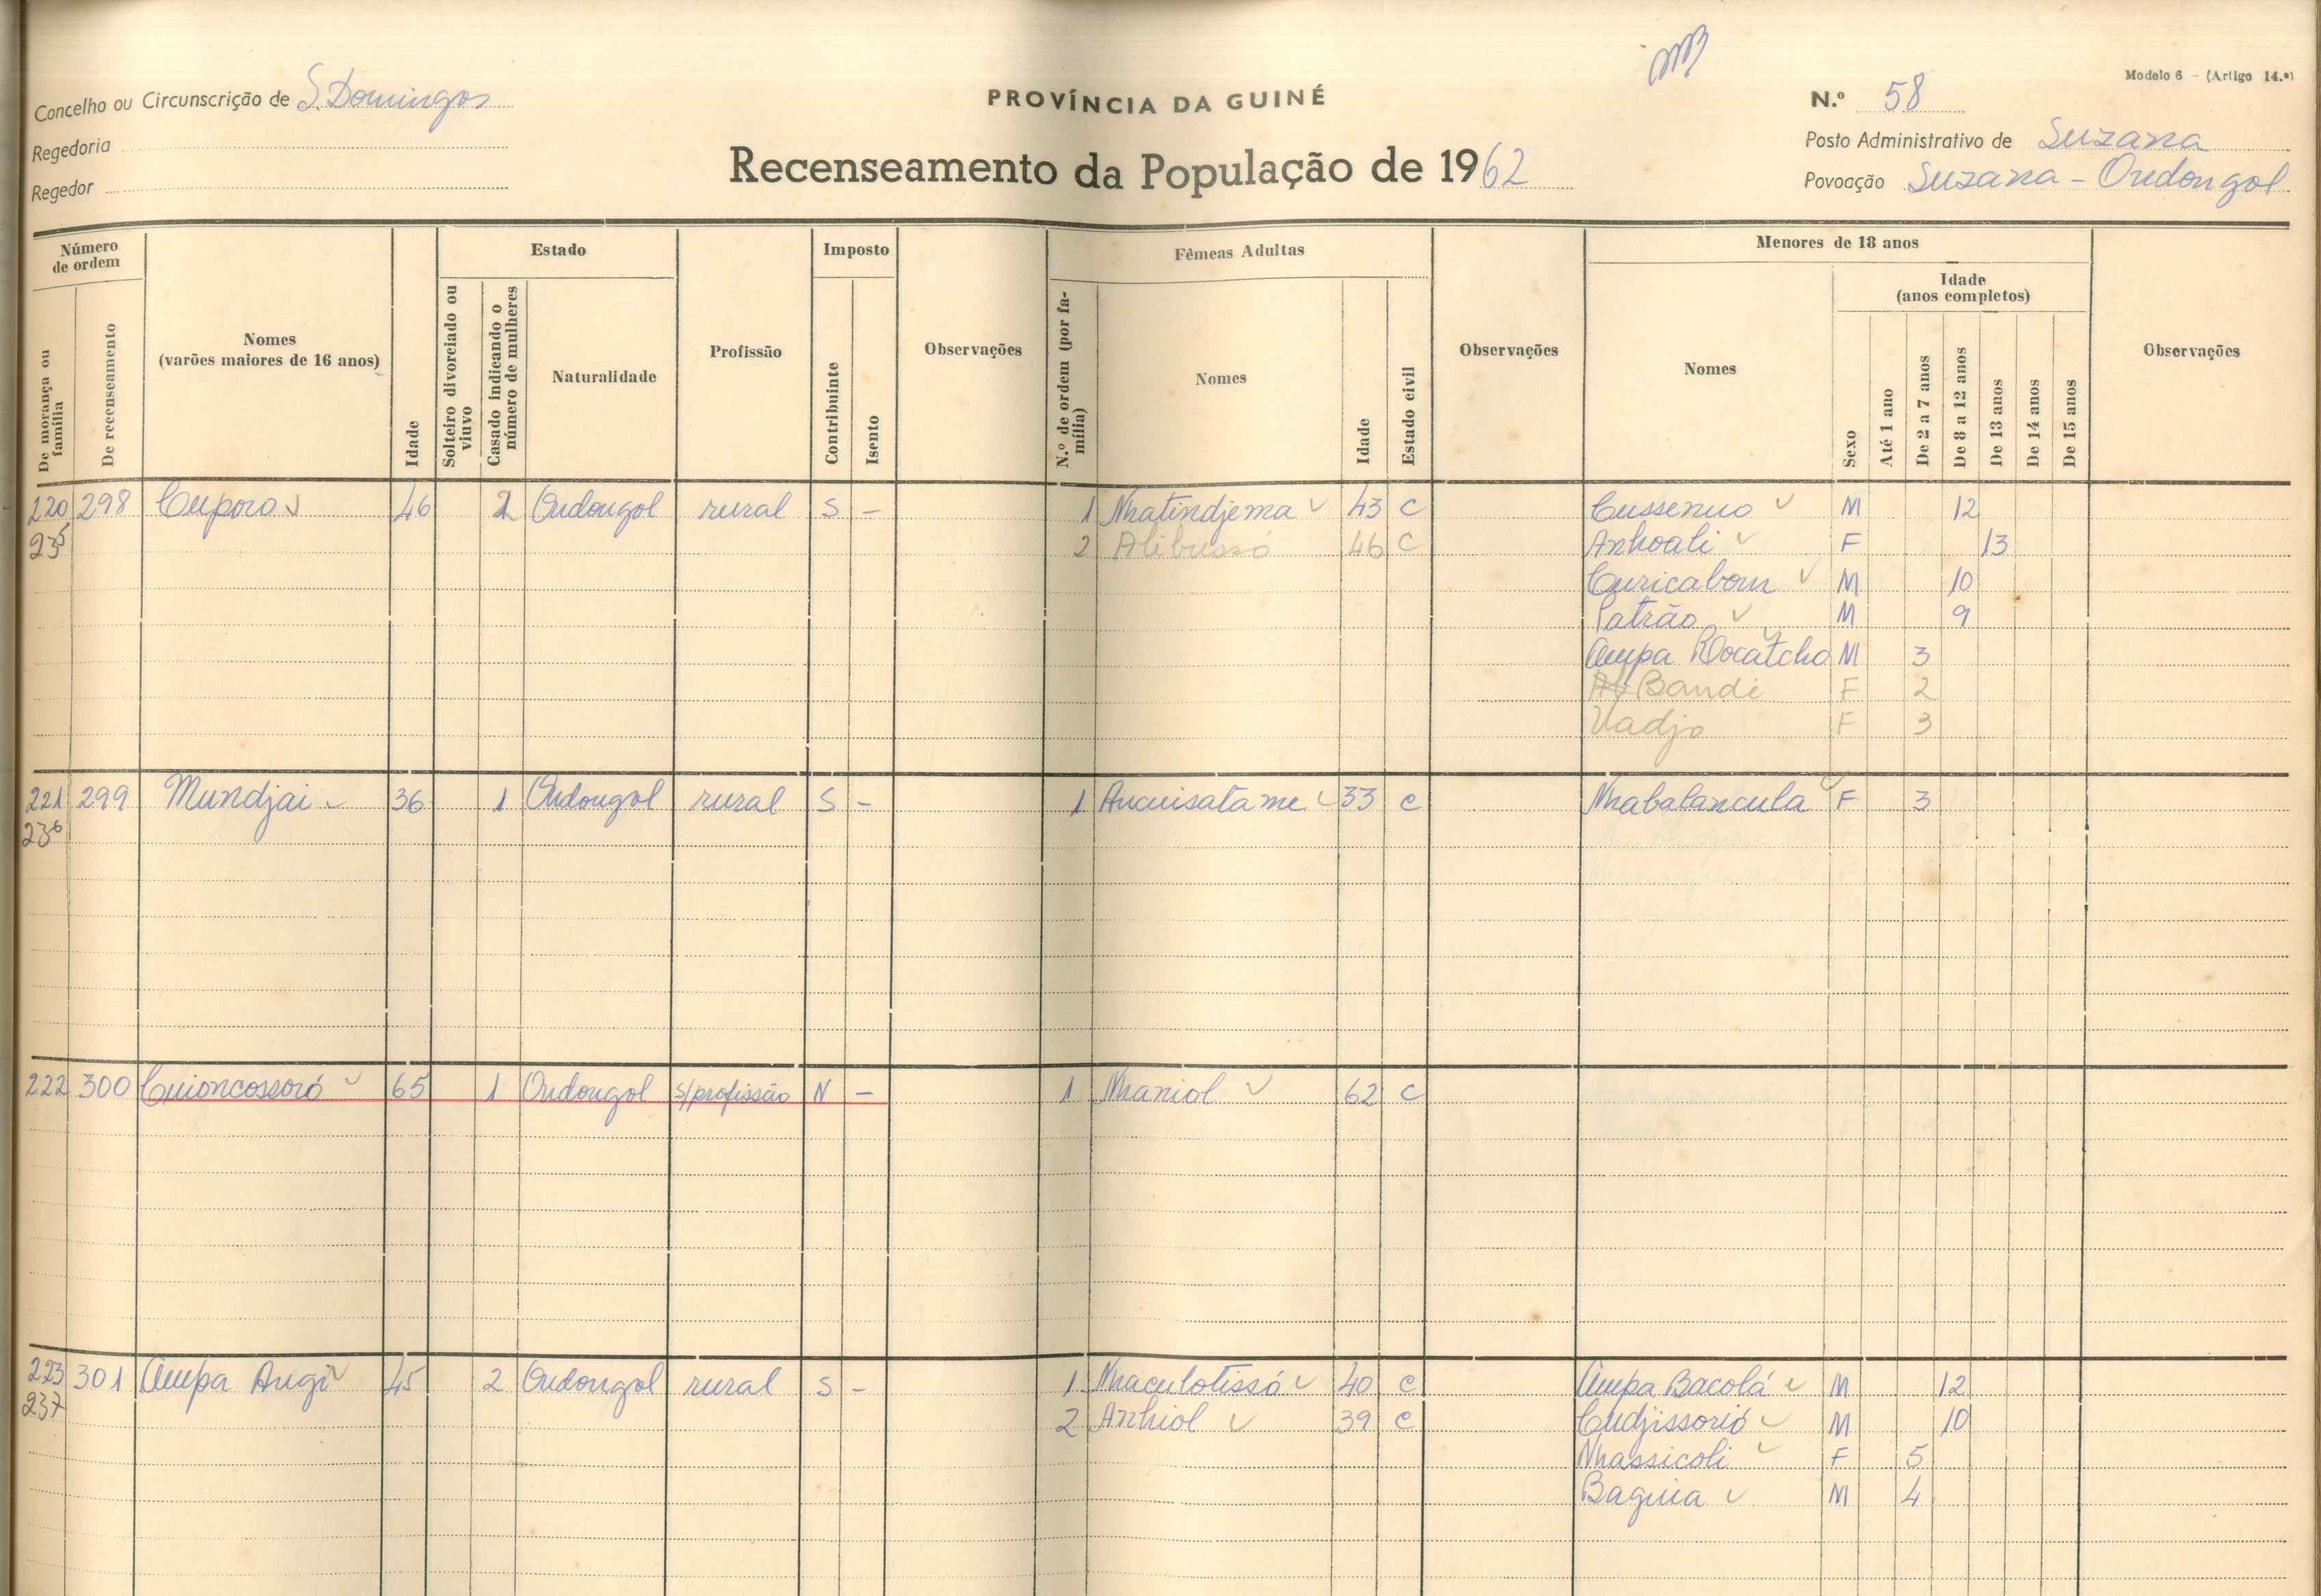 Modelo 6 - (Artigo 14.º)
Concelho ou Circunscrição de S. Domingos
PROVÍNCIA DA GUINÉ
N.º 58
Regedoria
Posto Administrativo de Suzana
Regedor
Recenseamento da População de 1962
Povoação Suzana - Ondongol
Número de ordem
Estado
Imposto
Fêmeas Adultas
Menores de 18 anos
Idade (anos completos)
De morança ou família
De recenseamento
Nomes (varões maiores de 16 anos)
Idade
Solteiro divorciado ou viuvo
Casado indicando o número de mulheres
Naturalidade
Profissão
Contribuinte
Isento
Observações
N.º de ordem (por família)
Nomes
Idade
Estado civil
Observações
Nomes
Sexo
Até 1 ano
De 2 a 7 anos
De 8 a 12 anos
De 13 anos
De 14 anos
De 15 anos
Observações
220 298 Cuporo 46 2 Ondongol rural S - 1 Nhatindjema 43 C Cussenuo M 12
235 2 Alibussó 46 C Anhoali F 13
Curicabom M 10
Patrão M 9
Ampa Bocatcho M 3
Bandi F 2
Vadjo F 3
221 299 Mundjai 36 1 Ondongol rural S - 1 Ancuisatame 33 C Nhabalancula F 3
236
222 300 Cuioncossoró 65 1 Ondongol s/profissão N - 1 Nhaniol 62 C
223 301 Ampa Angi 45 2 Ondongol rural S - 1 Nhaculotissó 40 C Ampa Bacolá M 12
237 2 Anhiol 39 C Cudjissorió M 10
Nhassicoli F 5
Baguia M 4